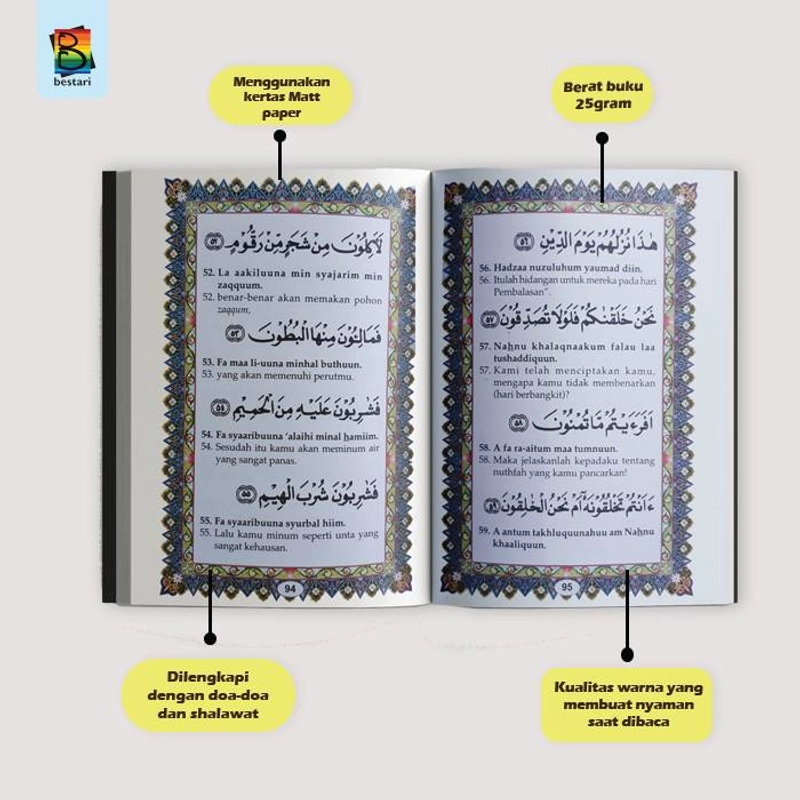 bestari
Menggunakan
kertas Matt
paper
Berat buku
25gram
لَاٰكِلُوْنَ مِنْ شَجَرٍ مِّنْ زَقُّوْمٍ ﴿٥٢﴾
52. La aakiluuna min syajarim min
zaqquum.
52. benar-benar akan memakan pohon
zaqqum,
فَمَالِـُٔوْنَ مِنْهَا الْبُطُوْنَ ﴿٥٣﴾
53. Fa maa li-uuna minhal buthuun.
53. yang akan memenuhi perutmu.
فَشٰرِبُوْنَ عَلَيْهِ مِنَ الْحَمِيْمِ ﴿٥٤﴾
54. Fa syaaribuuna ‘alaihi minal hamiim.
54. Sesudah itu kamu akan meminum air
yang sangat panas.
فَشٰرِبُوْنَ شُرْبَ الْهِيْمِ ﴿٥٥﴾
55. Fa syaaribuuna syurbal hiim.
55. Lalu kamu minum seperti unta yang
sangat kehausan.
94
هٰذَا نُزُلُهُمْ يَوْمَ الدِّيْنِ ﴿٥٦﴾
56. Hadzaa nuzuluhum yaumad diin.
56. Itulah hidangan untuk mereka pada hari
Pembalasan”.
نَحْنُ خَلَقْنٰكُمْ فَلَوْلَا تُصَدِّقُوْنَ ﴿٥٧﴾
57. Nahnu khalaqnaakum falau laa
tushaddiquun.
57. Kami telah menciptakan kamu,
mengapa kamu tidak membenarkan
(hari berbangkit)?
اَفَرَءَيْتُمْ مَّا تُمْنُوْنَ ﴿٥٨﴾
58. A fa ra-aitum maa tumnuun.
58. Maka jelaskanlah kepadaku tentang
nuthfah yang kamu pancarkan!
ءَاَنْتُمْ تَخْلُقُوْنَهٗٓ اَمْ نَحْنُ الْخٰلِقُوْنَ ﴿٥٩﴾
59. A antum takhluquunahuu am Nahnu
khaaliquun.
95
Dilengkapi
dengan doa-doa
dan shalawat
Kualitas warna yang
membuat nyaman
saat dibaca